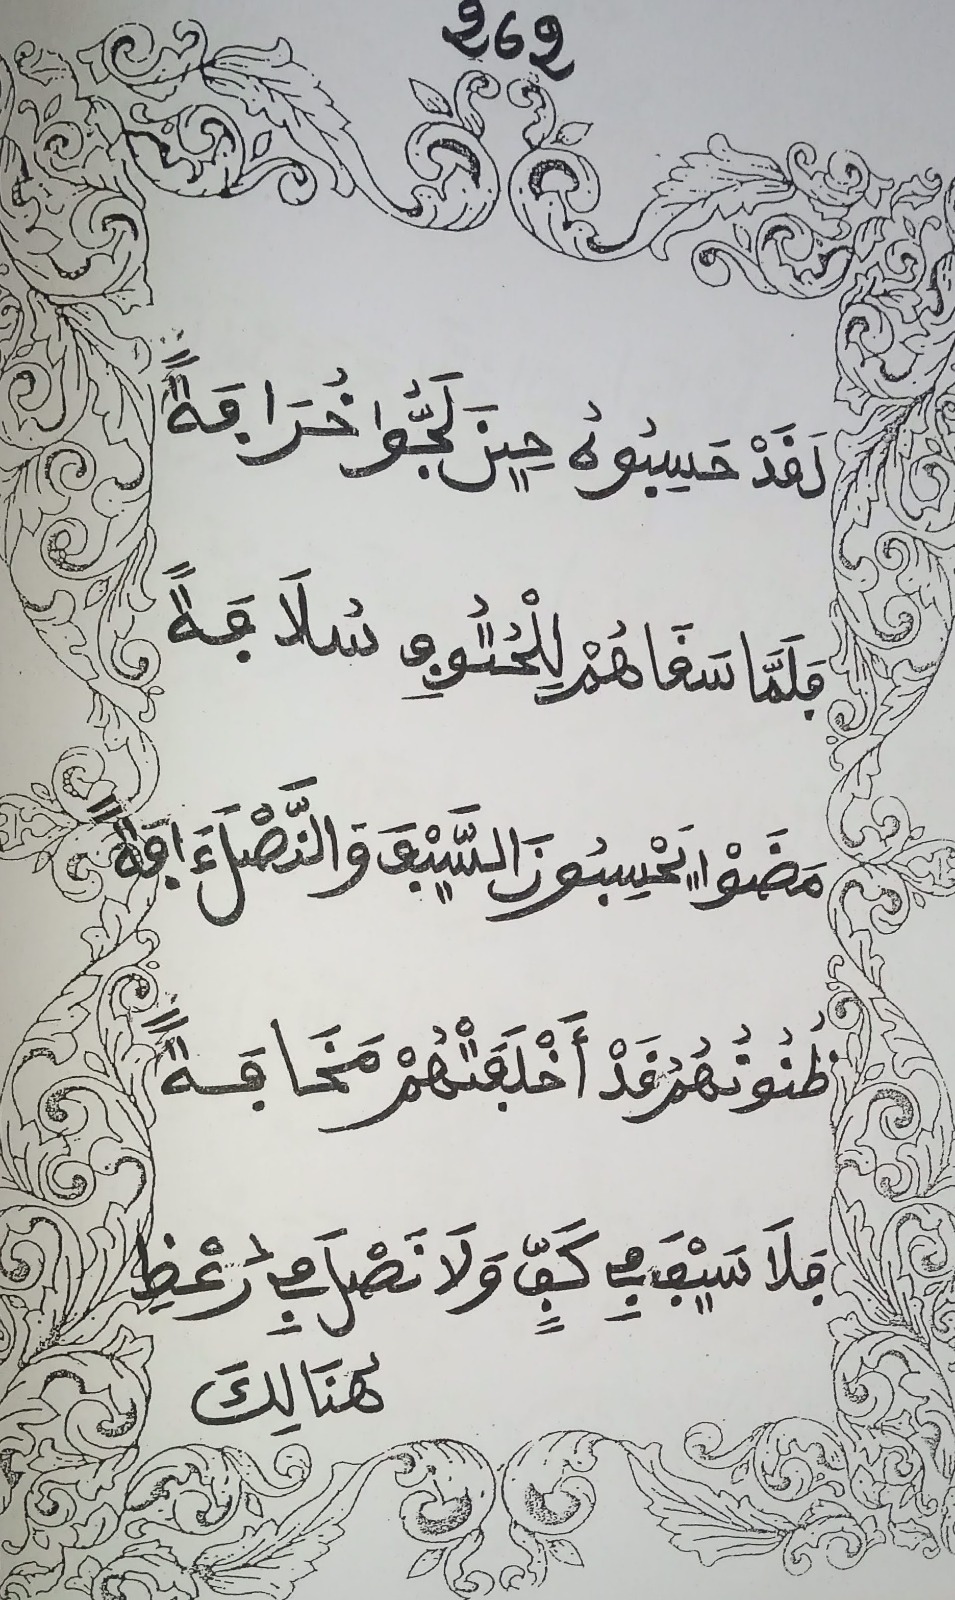 262
لَقَدْ حَسِبُوهُ حِينَ لَجُّوا خُرَافَةً
فَلَمَّا سَقَاهُمْ لِلْحُتُوفِ سُلَافَةً
مَضَوْا يَحْسِبُونَ السَّيْفَ وَالنَّصْلَ ءَافَةً
ظُنُونُهُمْ قَدْ أَخْلَفَتْهُمْ مَخَافَةً
فَلَا سَيْفَ فِي كَفٍّ وَلَا نَصْلَ فِي رُعْظِ
هُنَالِكَ